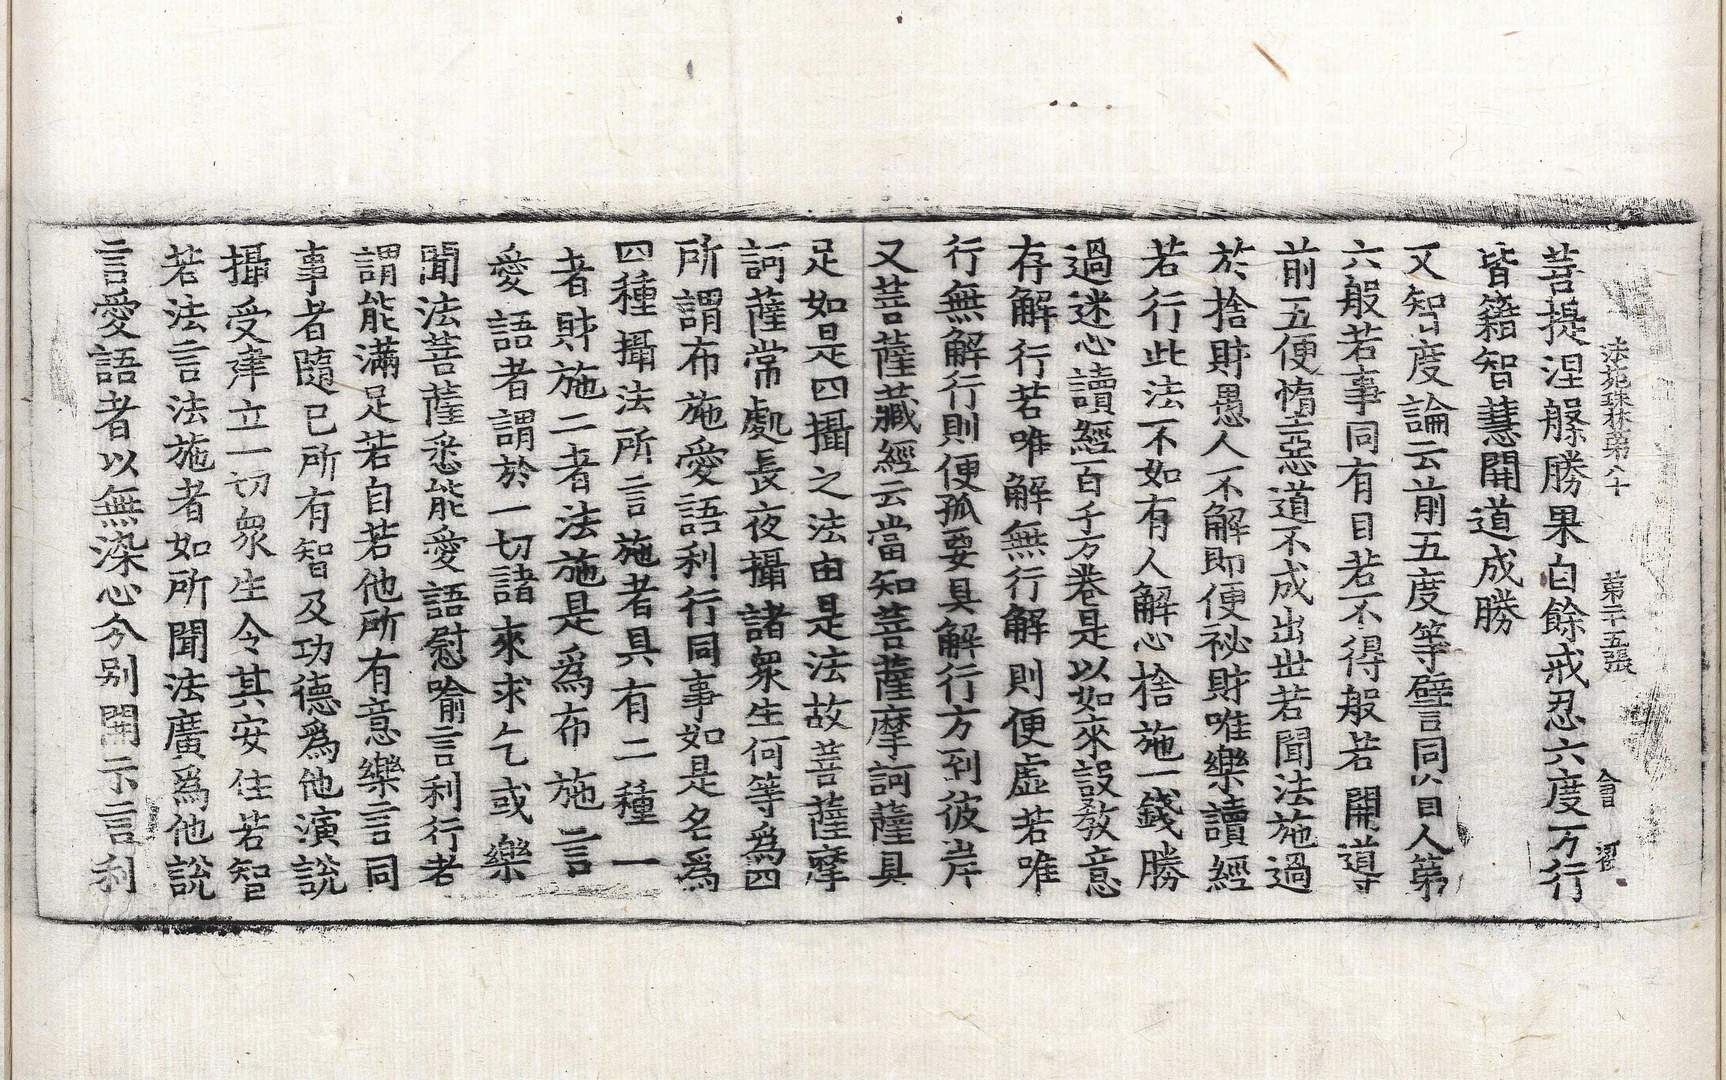 法苑珠林第八十　第二十五張　會
菩提涅槃勝果自餘戒忍六度万行
皆籍智慧開道成勝
又智度論云前五度等譬同盲人第
六般若事同有目若不得般若開導
前五便墮惡道不成出世若聞法施過
於捨財愚人不解即便祕財唯樂讀經
若行此法不如有人解心捨施一錢勝
過迷心讀經百千万卷是以如來設教意
存解行若唯解無行解則便虛若唯
行無解行則便孤要具解行方到彼岸
又菩薩藏經云當知菩薩摩訶薩具
足如是四攝之法由是法故菩薩摩
訶薩常處長夜攝諸衆生何等為四
所謂布施愛語利行同事如是名為
四種攝法所言施者具有二種一
者財施二者法施是為布施言
愛語者謂於一切諸來求乞或樂
聞法菩薩悉能愛語慰喻言利行者
謂能滿足若自若他所有意樂言同
事者隨己所有智及功德為他演說
攝受建立一切衆生令其安住若智
若法言法施者如所聞法廣為他說
言愛語者以無染心分別開示言利